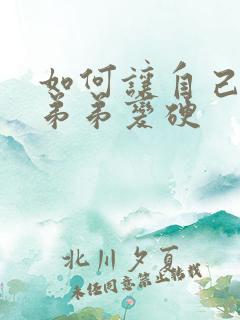 如何讓自己
弟弟變硬
北川夕夏
未经同意禁止转载